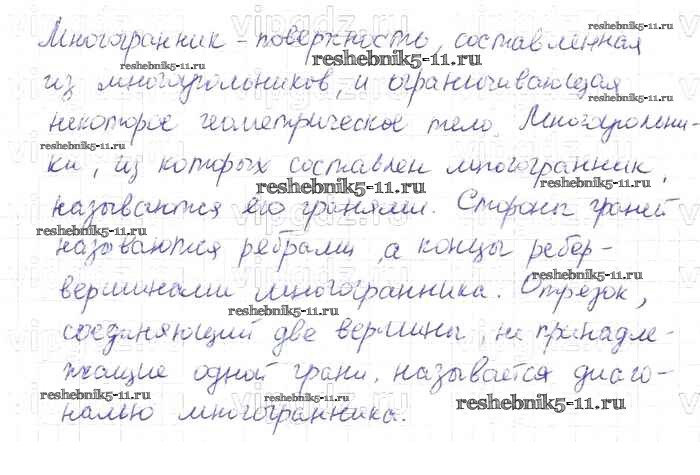 Многогранник - поверхность, составленная
из многоугольников, и ограничивающая
некоторое геометрическое тело. Многоугольни-
ки, из которых составлен многогранник,
называются его гранями. Стороны граней
называются рёбрами, а концы ребер-
вершинами многогранника. Отрезок,
соединяющий две вершины, не принадле-
жащие одной грани, называется диаго-
налью многогранника.
reshebnik5-11.ru
reshebnik5-11.ru
reshebnik5-11.ru
reshebnik5-11.ru
reshebnik5-11.ru
reshebnik5-11.ru
reshebnik5-11.ru
reshebnik5-11.ru
reshebnik5-11.ru
reshebnik5-11.ru
reshebnik5-11.ru
reshebnik5-11.ru